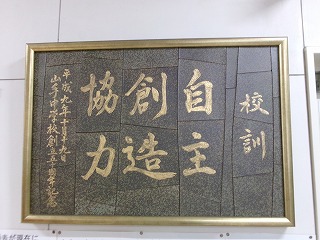 校訓
自主
創造
協力
平成九年十月十九日
中学校創立五十周年記念